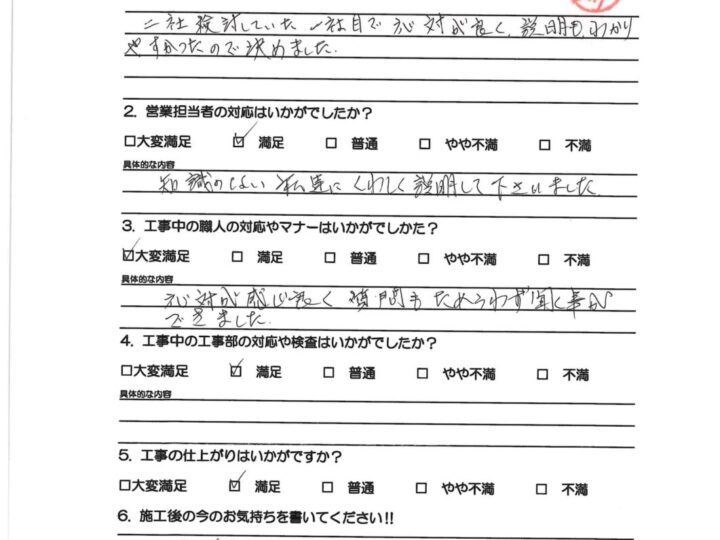 二社検討していた一社目で応対が良く、説明もわかり
やすかったので決めました.
2. 営業担当者の対応はいかがでしたか?
☑大変満足 ☑ 満足 □ 普通 □ やや不満 □ 不満
具体的な内容
知識のない私達にくわしく説明して下さいました
3. 工事中の職人の対応やマナーはいかがでしかた?
☑大変満足 □ 満足 □ 普通 □ やや不満 □ 不満
具体的な内容
応対が感じ良く 質問もためらわず聞く事が
できました.
4. 工事中の工事部の対応や検査はいかがでしたか?
□大変満足 ☑ 満足 □ 普通 □ やや不満 □ 不満
具体的な内容
5. 工事の仕上がりはいかがですか?
□大変満足 ☑ 満足 □ 普通 □ やや不満 □ 不満
6. 施工後の今のお気持ちを書いてください!!